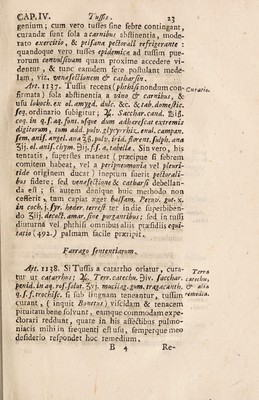 CAP. IV. Tussis. 23
genium; cum vero tusses sine febre contingant,
curandæ sunt sola a carnibus abstinentia, mode-
rato exercitio, & ptisana pectorali refrigerante :
quandoque vero tusses epidemicæ ad tussim pue-
rorum convulsivam quam proxime accedere vi-
dentur, & tunc eamdem fere postulant mede-
lam, viz. venæsectionem & catharsin.
Art. 1137. Tussis recens (phthisi nondum con- Curatio.
firmata) sola abstinentia a vino & carnibus, &
usu lohoch. ex ol. amygd. dulc. &c. & tab. domestic.
seq. ordinario subigitur; ℞. Sacchar. cand. ℔iß.
coq. in q. s. aq. font. usque dum adhærescat extremis
digitorum, tum add. pulv. glycyrrhiz. enul. campan.
sem. anis. angel. ana ℥ß. pulv. irid. florent. sulph. ana
ʒij. ol. anis. chym. ℈ij. f. s. a. tabellæ. Sin vero, his
tentatis, superstes maneat (præcipue si febrem
comitem habeat, vel a peripneumonia vel pleuri-
tide originem ducat) ineptum fuerit pectorali-
bus fidere; sed venæsectione & catharsi debellan-
da est; si autem denique huic methodo non
cesserit, tum capiat æger balsam. Peruv. gut. x.
in coch. j. syr. heder. terrest. ter in die superbiben-
do ℥iij. decoct. amar. sine purgantibus; sed in tussi
diuturna vel phthisi omnibus aliis præsidiis equi-
tatio (492.) palmam facile præripit.
Farrago sententiarum.
Art. 1138. Si Tussis a catarrho oriatur, cura- Terra
tur ut catarrhus; ℞. Terr. catechu. ℈iv. sacchar. catechu,
penid. in aq. ros. solut. ʒvj. mucilag. gum. tragacanth. & alia
q. s. f. trochisc. si sub lingnam teneantur, tussim remedia.
curant, (inquit Bonetus) viscidam & tenacem
pituitam bene solvunt, eumque commodam expe-
ctorari reddunt, quare in his affectibus pulmo-
niacis mihi in frequenti est usu, semperque meo
desiderio respondet hoc remedium.
B 4 Re-